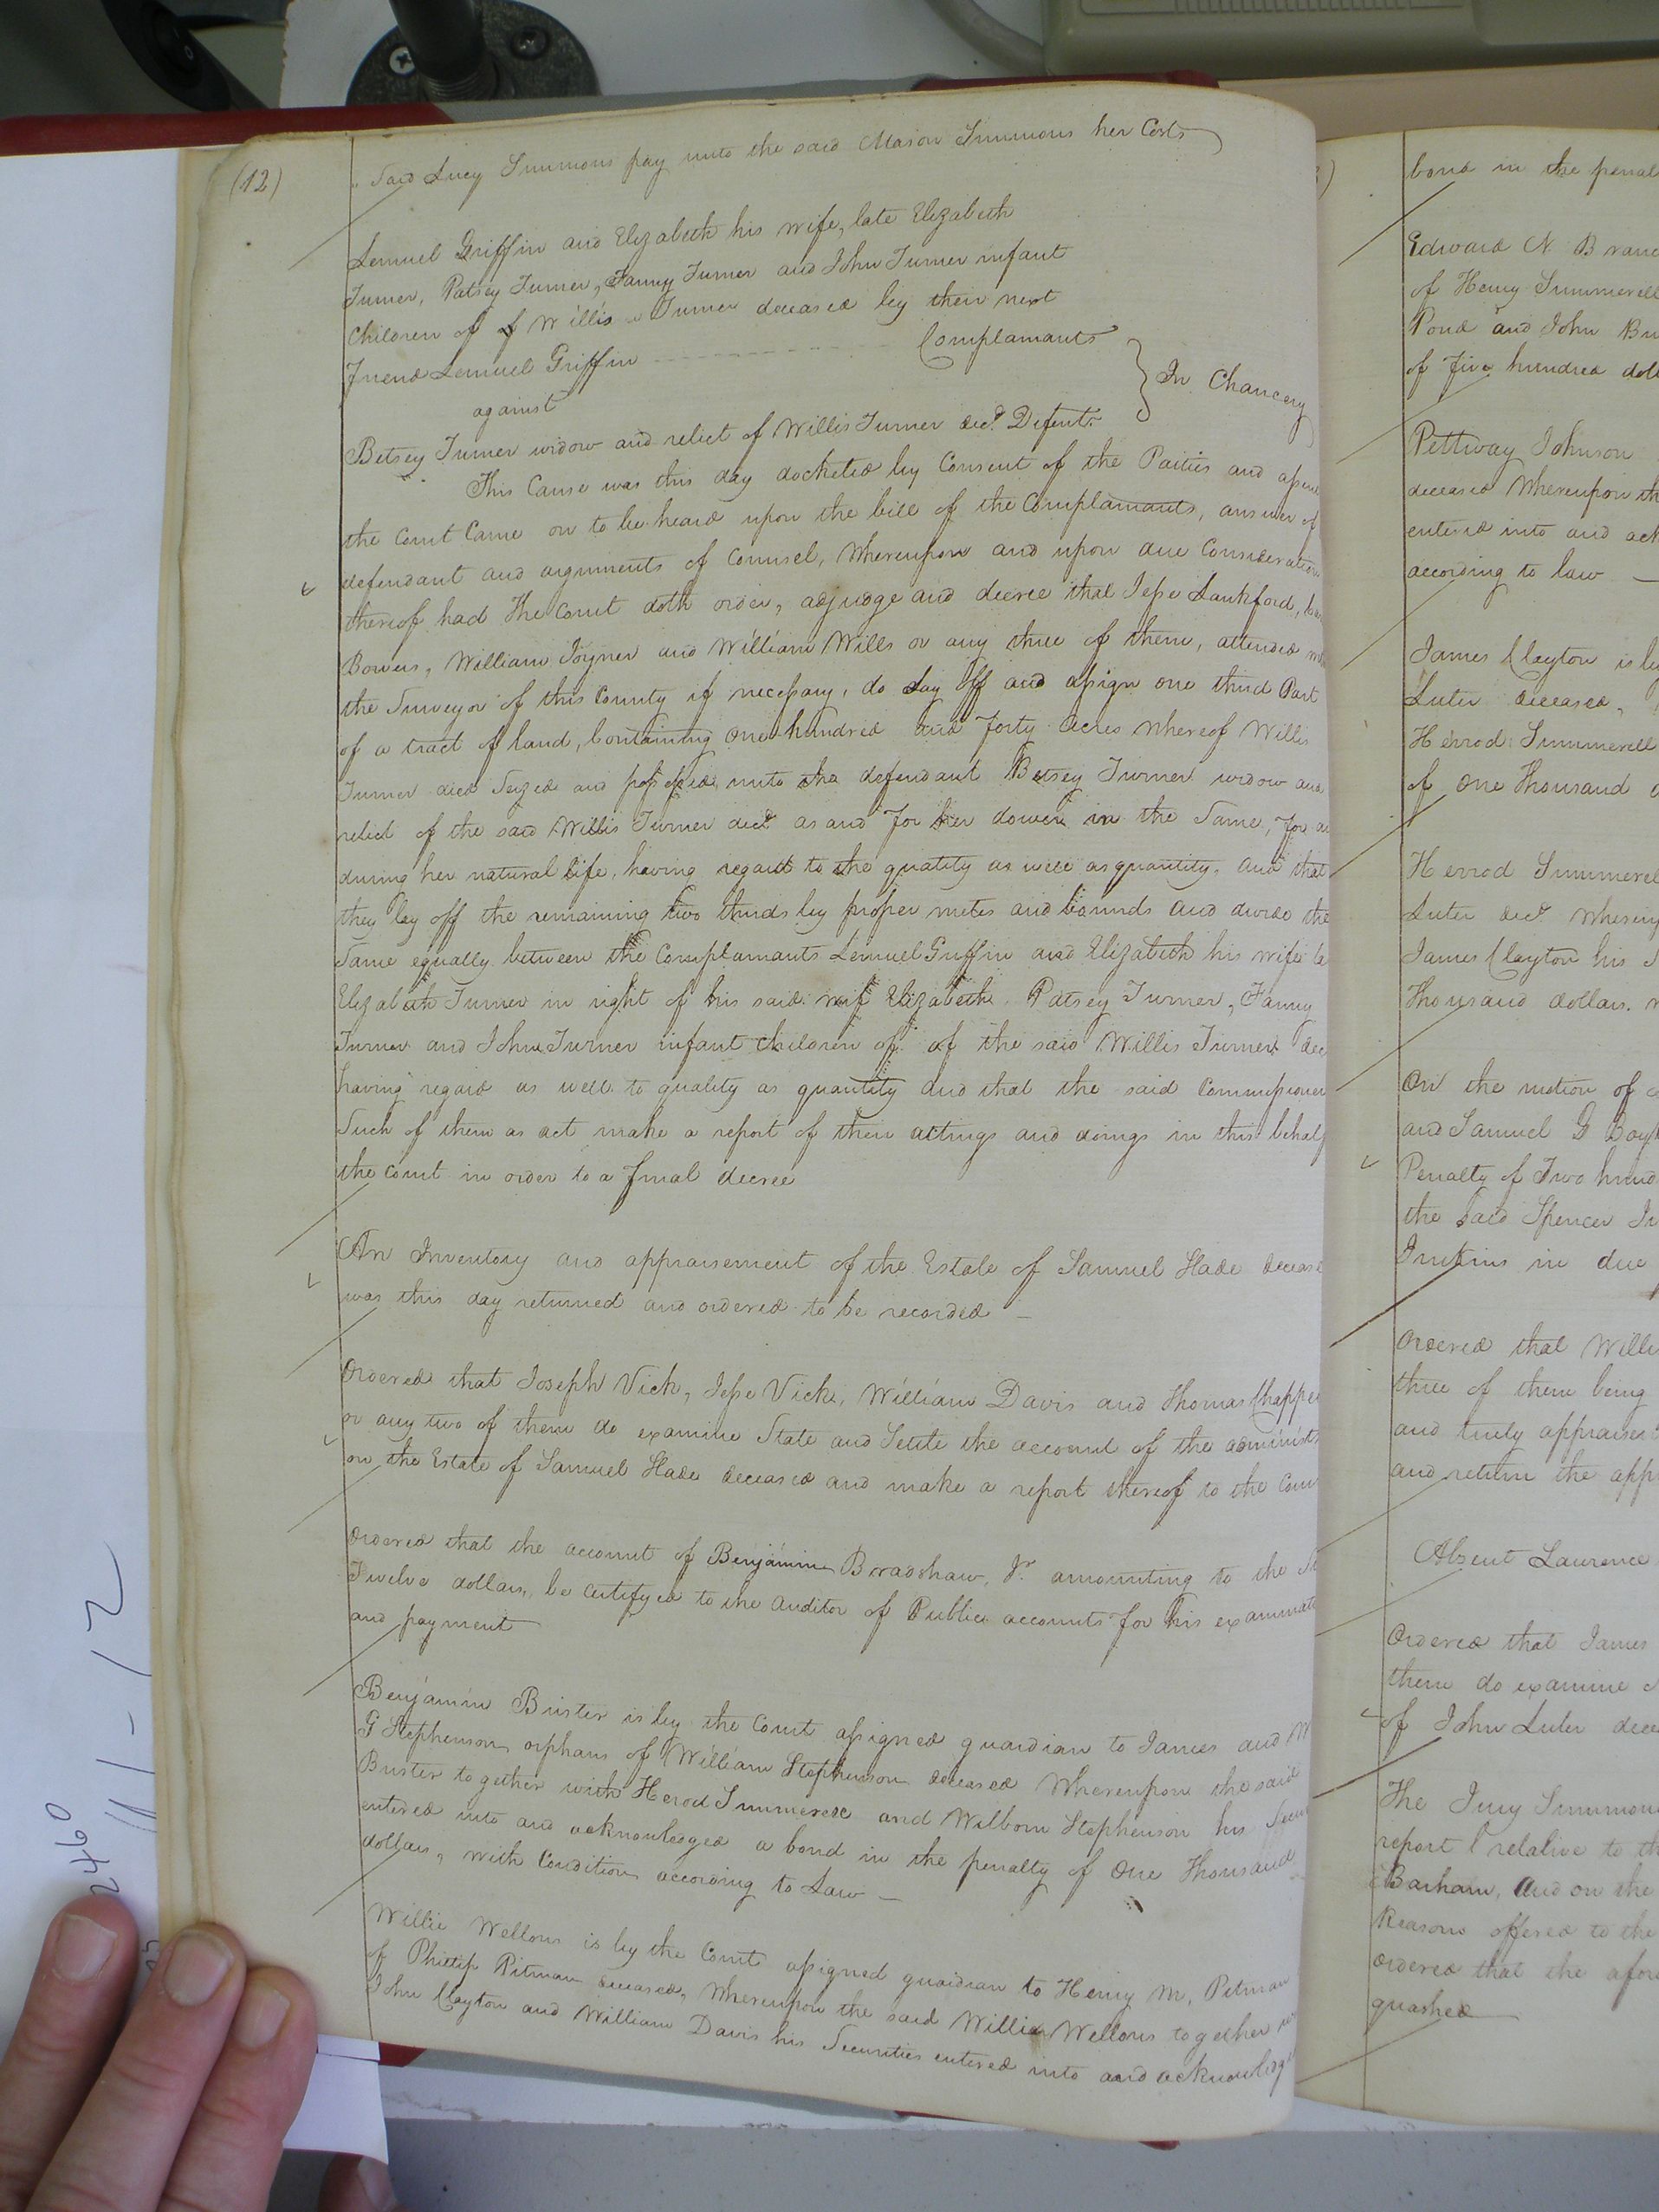 (12)
said Lucy Simmons pay unto the said Mason Simmons her Costs
Lemuel Griffin and Elizabeth his wife, late Elizabeth
Turner, Patsey Turner, Fanny Turner and John Turner infant
Children of of Willis Turner deceased by their next
Friend Lemuel Griffin Complainants
against
} In Chancery
Betsey Turner widow and relict of Willis Turner decd. Defent.
This Cause was this day docketed by Consent of the Parties and
the Court Came on to be heard upon the bill of the Complainants, answer of
defendant and arguments of Counsel, Whereupon and upon due Consideration
thereof had The Court doth order, adjudge and decree that Jesse Lankford,
Bowers, William Joyner and William Wills or any three of them, attended
the Surveyor of this County if necessary, do Lay Off and assign one third Part
of a tract of land, Containing One hundred and Forty Acres whereof Willis
Turner died Seized and possessed, unto the defendant Betsey Turner widow and
relict of the said Willis Turner decd. as and For her dower in the Same, For
during her natural life, having regard to the quality as well as quantity, and that
they lay off the remaining two thirds by proper metes and bounds and divide the
Same equally between the Complainants Lemuel Griffin and Elizabeth his wife
Elizabeth Turner in right of his said wife Elizabeth, Patsey Turner, Fanny
Turner and John Turner infant Children of of the said Willis Turner dec
having regard as well to quality as quantity and that the said Commissioner
Such of them as act make a report of their actings and doings in this behalf
the Court in order to a final decree
An Inventory and appraisement of the Estate of Samuel Hade deceas
was this day returned and ordered to be recorded —
Ordered that Joseph Vick, Jesse Vick, William Davis and Thomas Chappe
or any two of them do examine State and Settle the account of the administ
on the Estate of Samuel Hade deceased and make a report thereof to the Cour
Ordered that the account of Benjamin Bradshaw, Jr. amounting to the
Twelve dollars, be Certifyed to the Auditor of Public accounts for his examinat
and payment
Benjamin Buster is by the Court assigned guardian to James and
G Stephenson orphans of William Stephenson deceased Whereupon the said
Buster together with Herod Summerell and Wilborn Stephenson his
entered into and acknowledged a bond in the penalty of One Thousand
dollars, with Condition according to Law —
Willie Wellons is by the Court assigned guardian to Henry M. Pitman
of Phillip Pitman deceased, Whereupon the said Willie Wellons together
John Clayton and William Davis his Securities entered into and acknowledge
bond in the penal
Edward N. B
of Henry Summerell
Pond and John
of Five hundred doll
Pettway Johnson
deceased Whereupon th
entered into and ack
according to law —
James Clayton is by
Luter deceased,
Herrod Summerell
of One Thousand
Herrod Summerel
Luter decd. Whereup
James Clayton his
Thousand dollars.
On the motion of
and Samuel
Penalty of Two hund
the Said Spencer
in due
Ordered that Willi
three of them being
and truly appraise
and return the app
Absent Laurence
Ordered that James
them do examine
of John Luter dece
The Jury Summon
report relative to th
Barham, And on the
Reasons offered to the
Ordered that the afor
quashed
2460
11-12